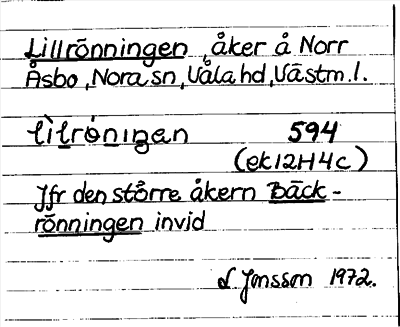 Lillrönningen, åker å Norr
Åsbo, Nora sn, Våla hd, Västm.l.
lìlrǿnıŋan 594
(ek 12H4c)
Jfr den större åkern Bäck-
rönningen invid
L Jonsson 1972.